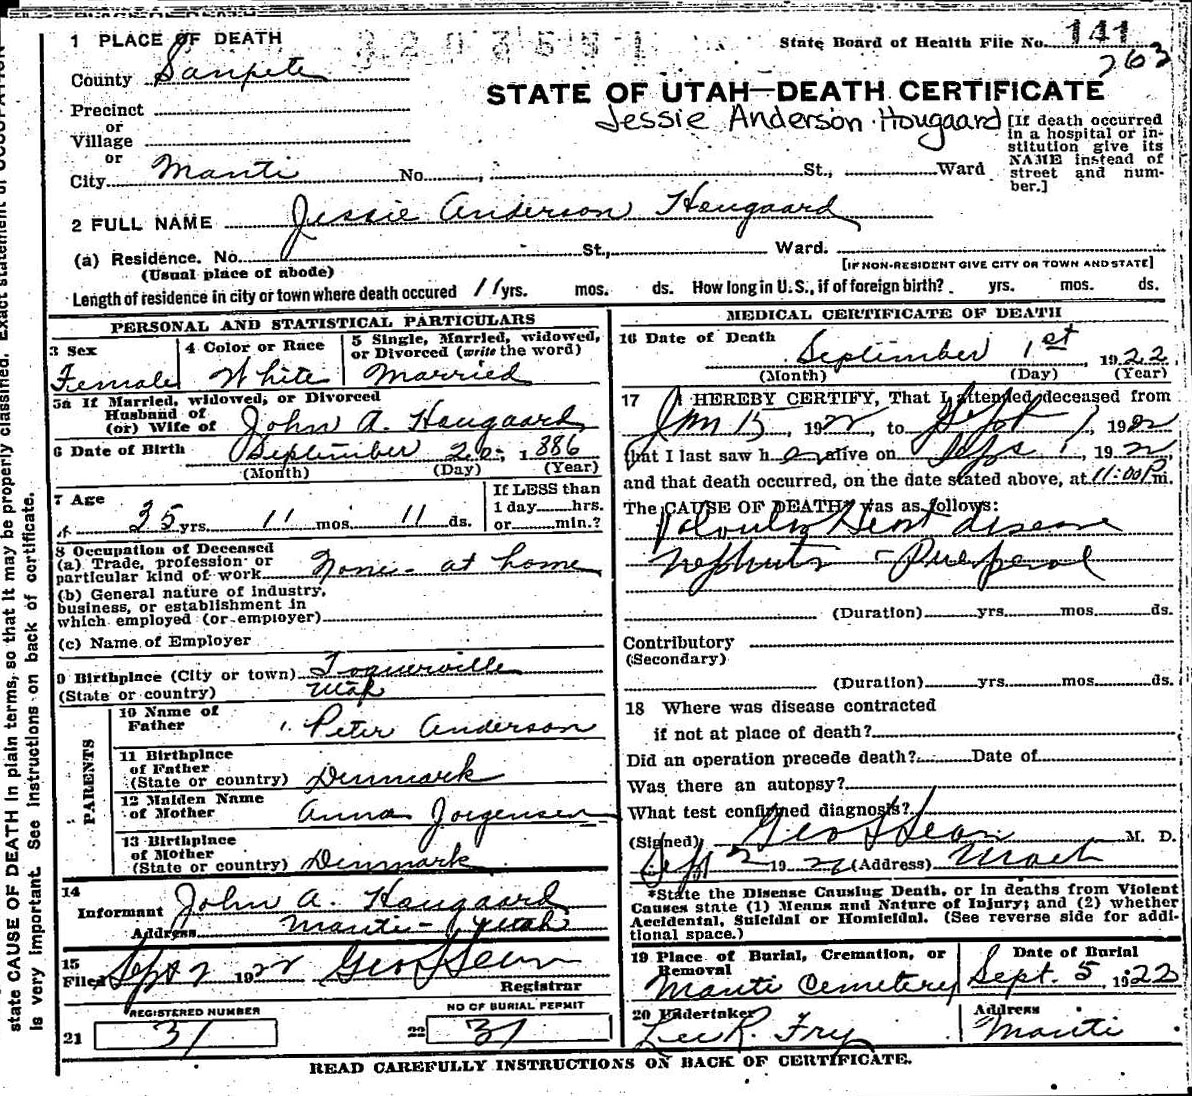 1 PLACE OF DEATH
State Board of Health File No. 141
263
County Sanpete
STATE OF UTAH—DEATH CERTIFICATE
Precinct
Jessie Anderson Hougaard
or
Village
or
City Manti No. , St., Ward
[If death occurred
in a hospital or in-
stitution give its
NAME instead of
street and num-
ber.]
2 FULL NAME Jessie Anderson Hougaard
(a) Residence. No. St., Ward.
(Usual place of abode)
[IF NON-RESIDENT GIVE CITY OR TOWN AND STATE]
Length of residence in city or town where death occured 11 yrs. mos. ds. How long in U.S., if of foreign birth? yrs. mos. ds.
PERSONAL AND STATISTICAL PARTICULARS
3 Sex
Female
4 Color or Race
White
5 Single, Married, widowed,
or Divorced (write the word)
Married
5a If Married, widowed, or Divorced
Husband of
(or) Wife of John A. Hougaard
6 Date of Birth September 20, 1886
(Month) (Day) (Year)
7 Age
35 yrs. 11 mos. 11 ds.
If LESS than
1 day hrs.
or min.?
8 Occupation of Deceased
(a) Trade, profession or
particular kind of work None - at home
(b) General nature of industry,
business, or establishment in
which employed (or employer)
(c) Name of Employer
9 Birthplace (City or town) Toquerville
(State or country) Utah
PARENTS
10 Name of
Father Peter Anderson
11 Birthplace
of Father
(State or country) Denmark
12 Maiden Name
of Mother Anna Jorgensen
13 Birthplace
of Mother
(State or country) Denmark
14
Informant John A. Hougaard
Address Manti - Utah
15
Filed Sept 2 1922 Geo L Sears
Registrar
REGISTERED NUMBER
21 31
NO OF BURIAL PERMIT
22 31
MEDICAL CERTIFICATE OF DEATH
16 Date of Death
September 1st 1922
(Month) (Day) (Year)
17 I HEREBY CERTIFY, That I attended deceased from
Jan 15, 1922, to Sept 1, 1922
that I last saw h er alive on Sept 1, 1922
and that death occurred, on the date stated above, at 11:00 P m.
The CAUSE OF DEATH was as follows:
Valvular Heart disease
Nephritis - Puerperal
(Duration) yrs. mos. ds.
Contributory
(Secondary)
(Duration) yrs. mos. ds.
18 Where was disease contracted
if not at place of death?
Did an operation precede death? Date of
Was there an autopsy?
What test confirmed diagnosis?
(Signed) Geo L Sears M. D.
Sept 2 1922 (Address) Manti
*State the Disease Causing Death, or in deaths from Violent
Causes state (1) Means and Nature of Injury; and (2) whether
Accidental, Suicidal or Homicidal. (See reverse side for addi-
tional space.)
19 Place of Burial, Cremation, or
Removal
Manti Cemetery
Date of Burial
Sept. 5, 1922
20 Undertaker
Lee R. Fry
Address
Manti
READ CAREFULLY INSTRUCTIONS ON BACK OF CERTIFICATE.
state CAUSE OF DEATH in plain terms, so that it may be properly classified. Exact statement of OCCUPATION
is very important. See instructions on back of certificate.